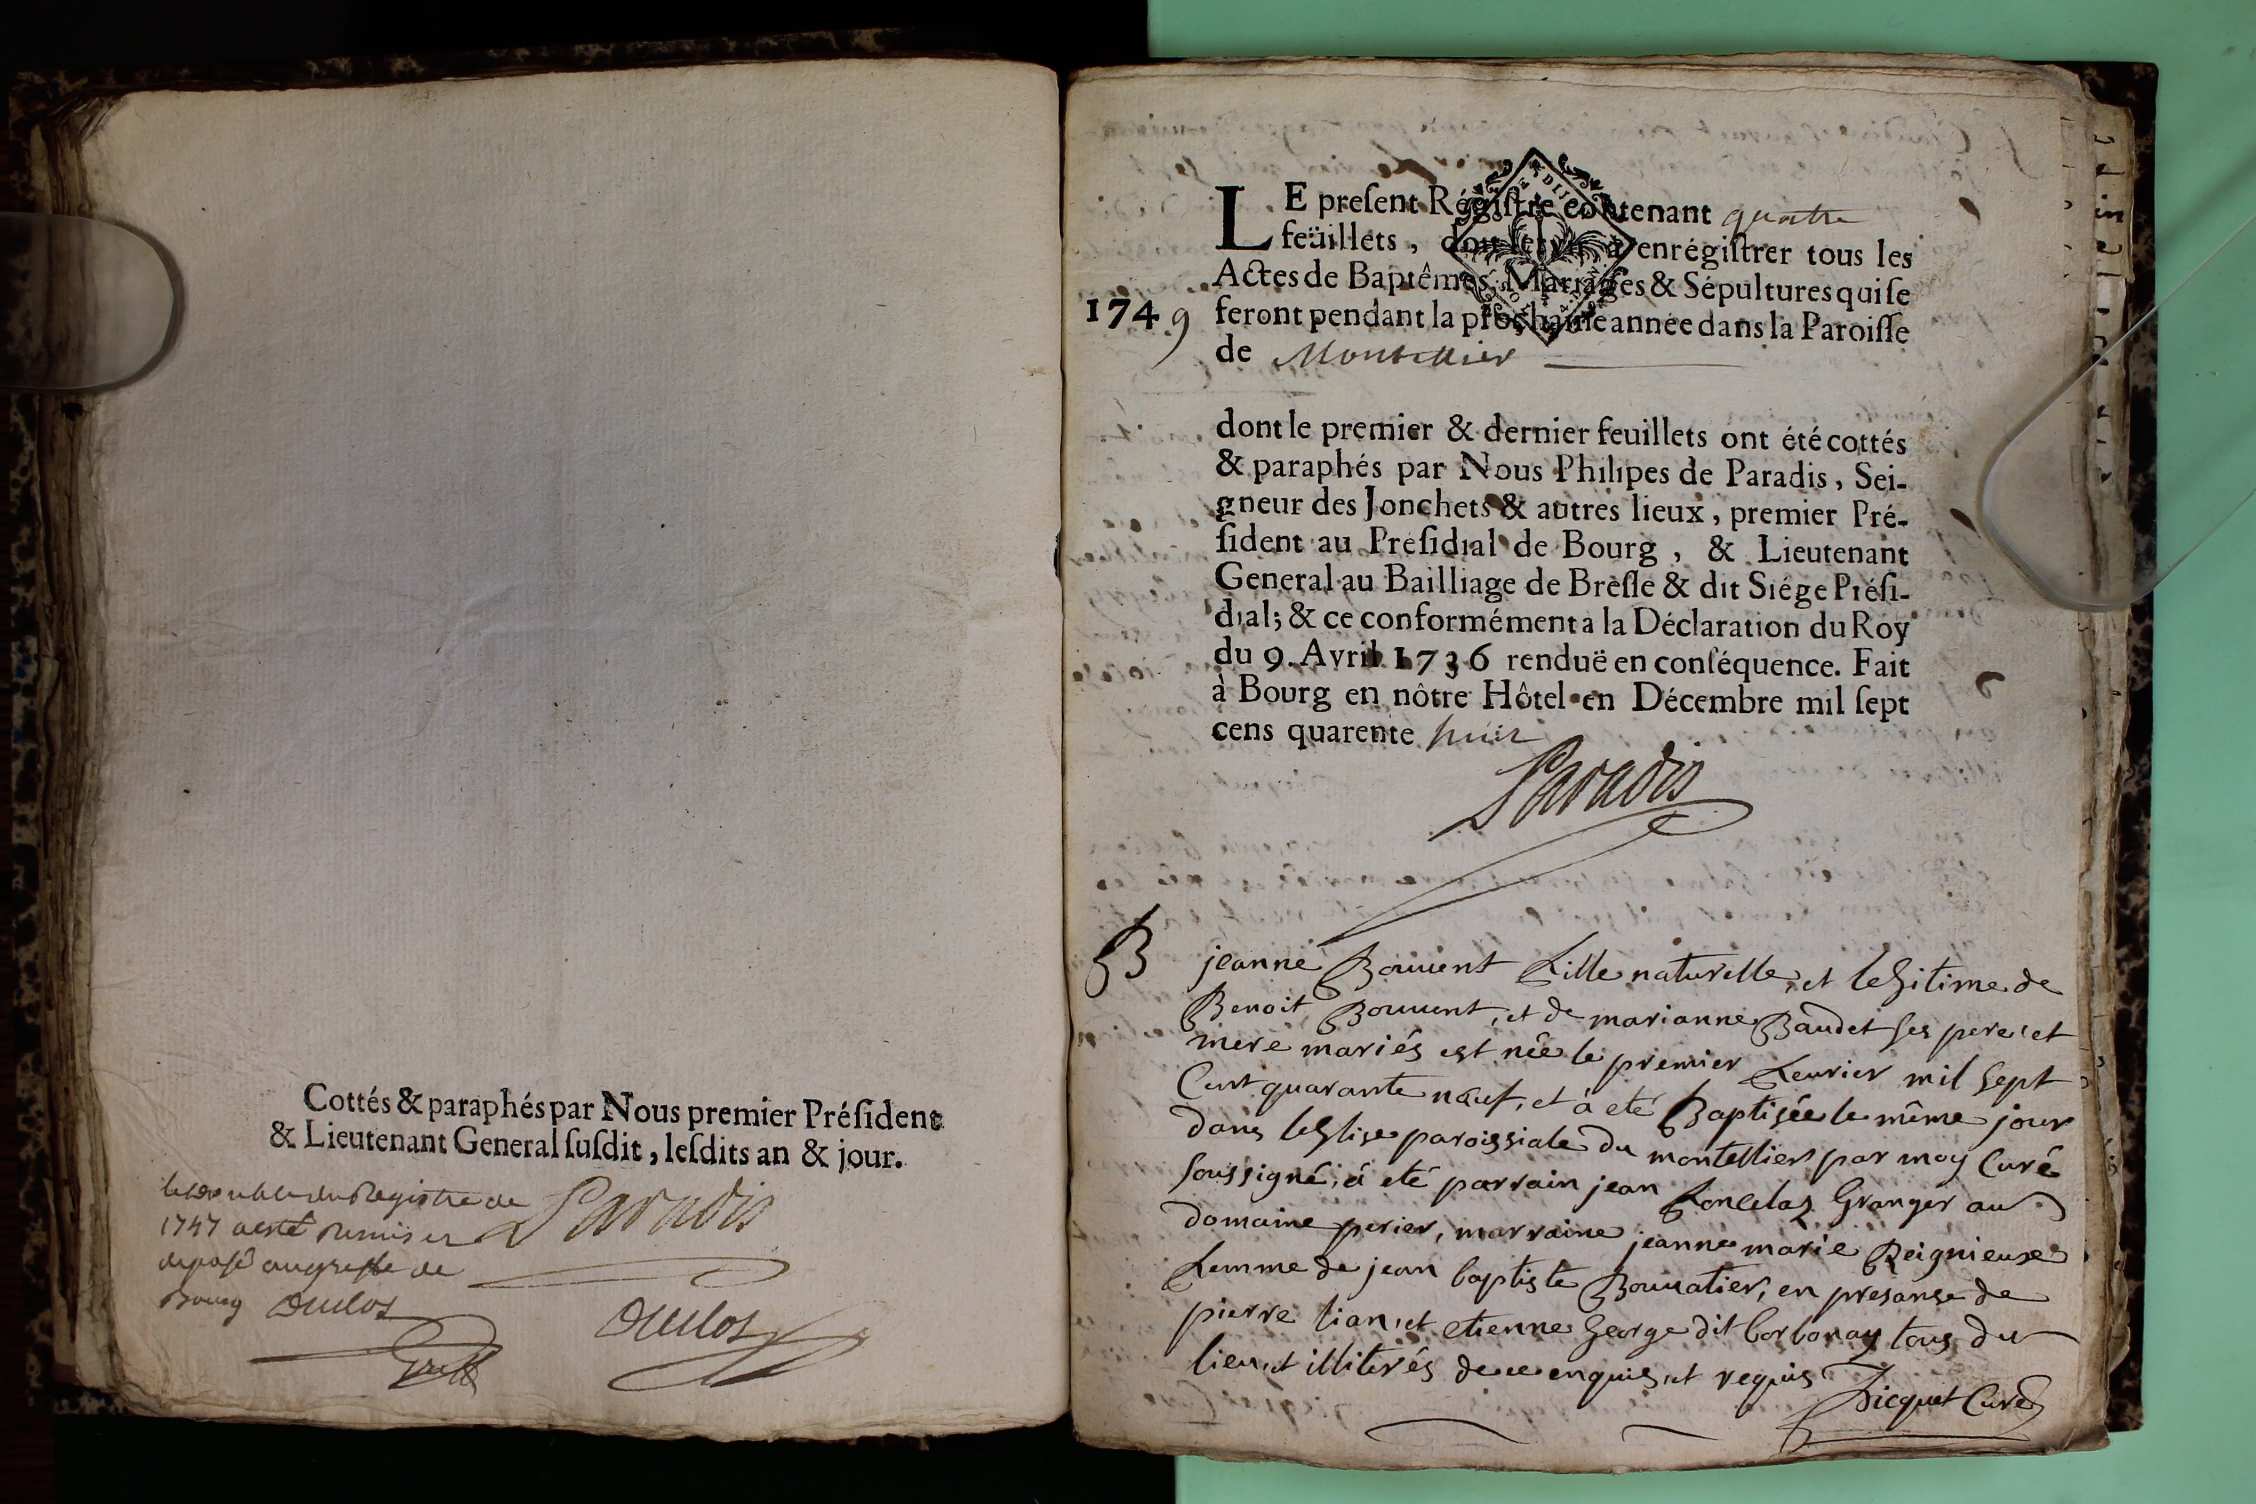 Cottés & paraphés par Nous premier Préſident
& Lieutenant General ſuſdit, leſdits an & jour.
le double du Registre de
1747 a esté remis et
deposé au greffe de
Bourg Duclos
Paradis
Duclos
LE preſent Régiſtre contenant quatre
feüillets, dou ſervir à enrégiſtrer tous les
Actes de Baptêmes, Marriages & Sépultures qui ſe
1749 feront pendant la prochaine année dans la Paroiſſe
de Montellier
dont le premier & dernier feuillets ont été cottés
& paraphés par Nous Philipes de Paradis, Sei-
gneur des Jonchets & autres lieux, premier Pré-
ſident au Preſidial de Bourg, & Lieutenant
General au Bailliage de Breſſe & dit Siége Préſi-
dial; & ce conformément a la Déclaration du Roy
du 9. Avril 1736 renduë en conſéquence. Fait
à Bourg en nôtre Hôtel en Décembre mil ſept
cens quarente huit
Paradis
B jeanne Bouvent fille naturelle, et leGitime de
Benoit Bouvent, et de marianne Baudet ses pere, et
mere mariés est née le premier fevrier mil sept
Cent quarante neuf, et à eté Baptisée le même jour
dans leGlise paroissiale du montellier par moy Curé
soussigné, à eté parrain jean Goncelaz Granger au
domaine perier, marraine jeanne marie Reignieuxe
femme de jean baptiste Bouvatier, en presanse de
pierre lian, et etienne George dit Corbonay tous du
lieu, et illiterés de ce enquis, et requis
Picquet Curé